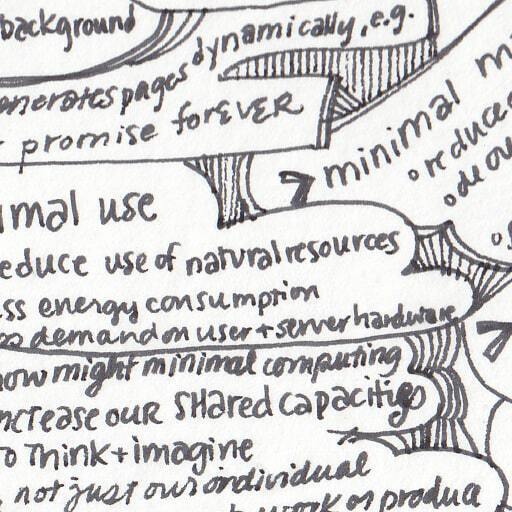 background
dynamically, e.g.
generates pages
promise forEVER
minimal
reduce
imal use
reduce use of natural resources
ss energy consumption
demand on user + server hardware
how might minimal computing
increase our shared capacities
to think + imagine
not just our individual
work or produc